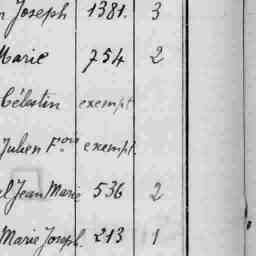 n Joseph 1381. 3
Marie 754 2
Célestin exempt
Julien F.ois exempt.
el Jean Marie 536 2
Marie Joseph. 213 1